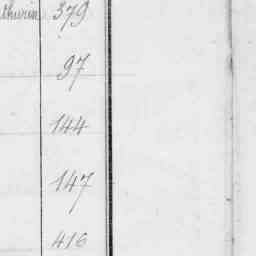 thurin 379
97
144
147
416